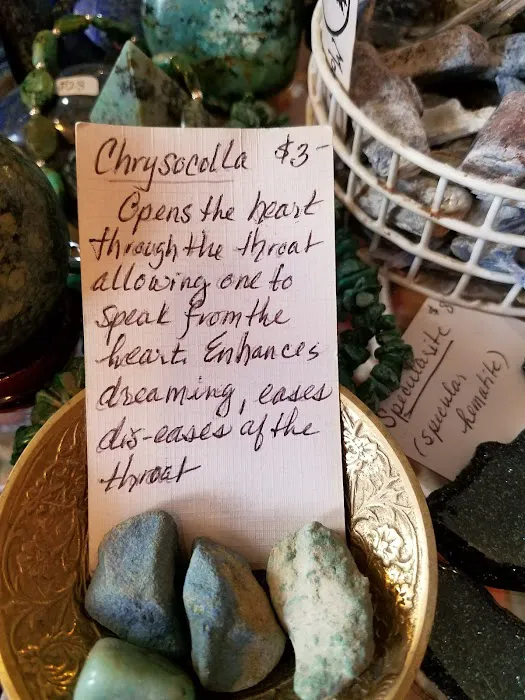 Chrysocolla $3-
Opens the heart
through the throat
allowing one to
speak from the
heart. Enhances
dreaming, eases
dis-eases of the
throat
Specularite
(specular
hematite)